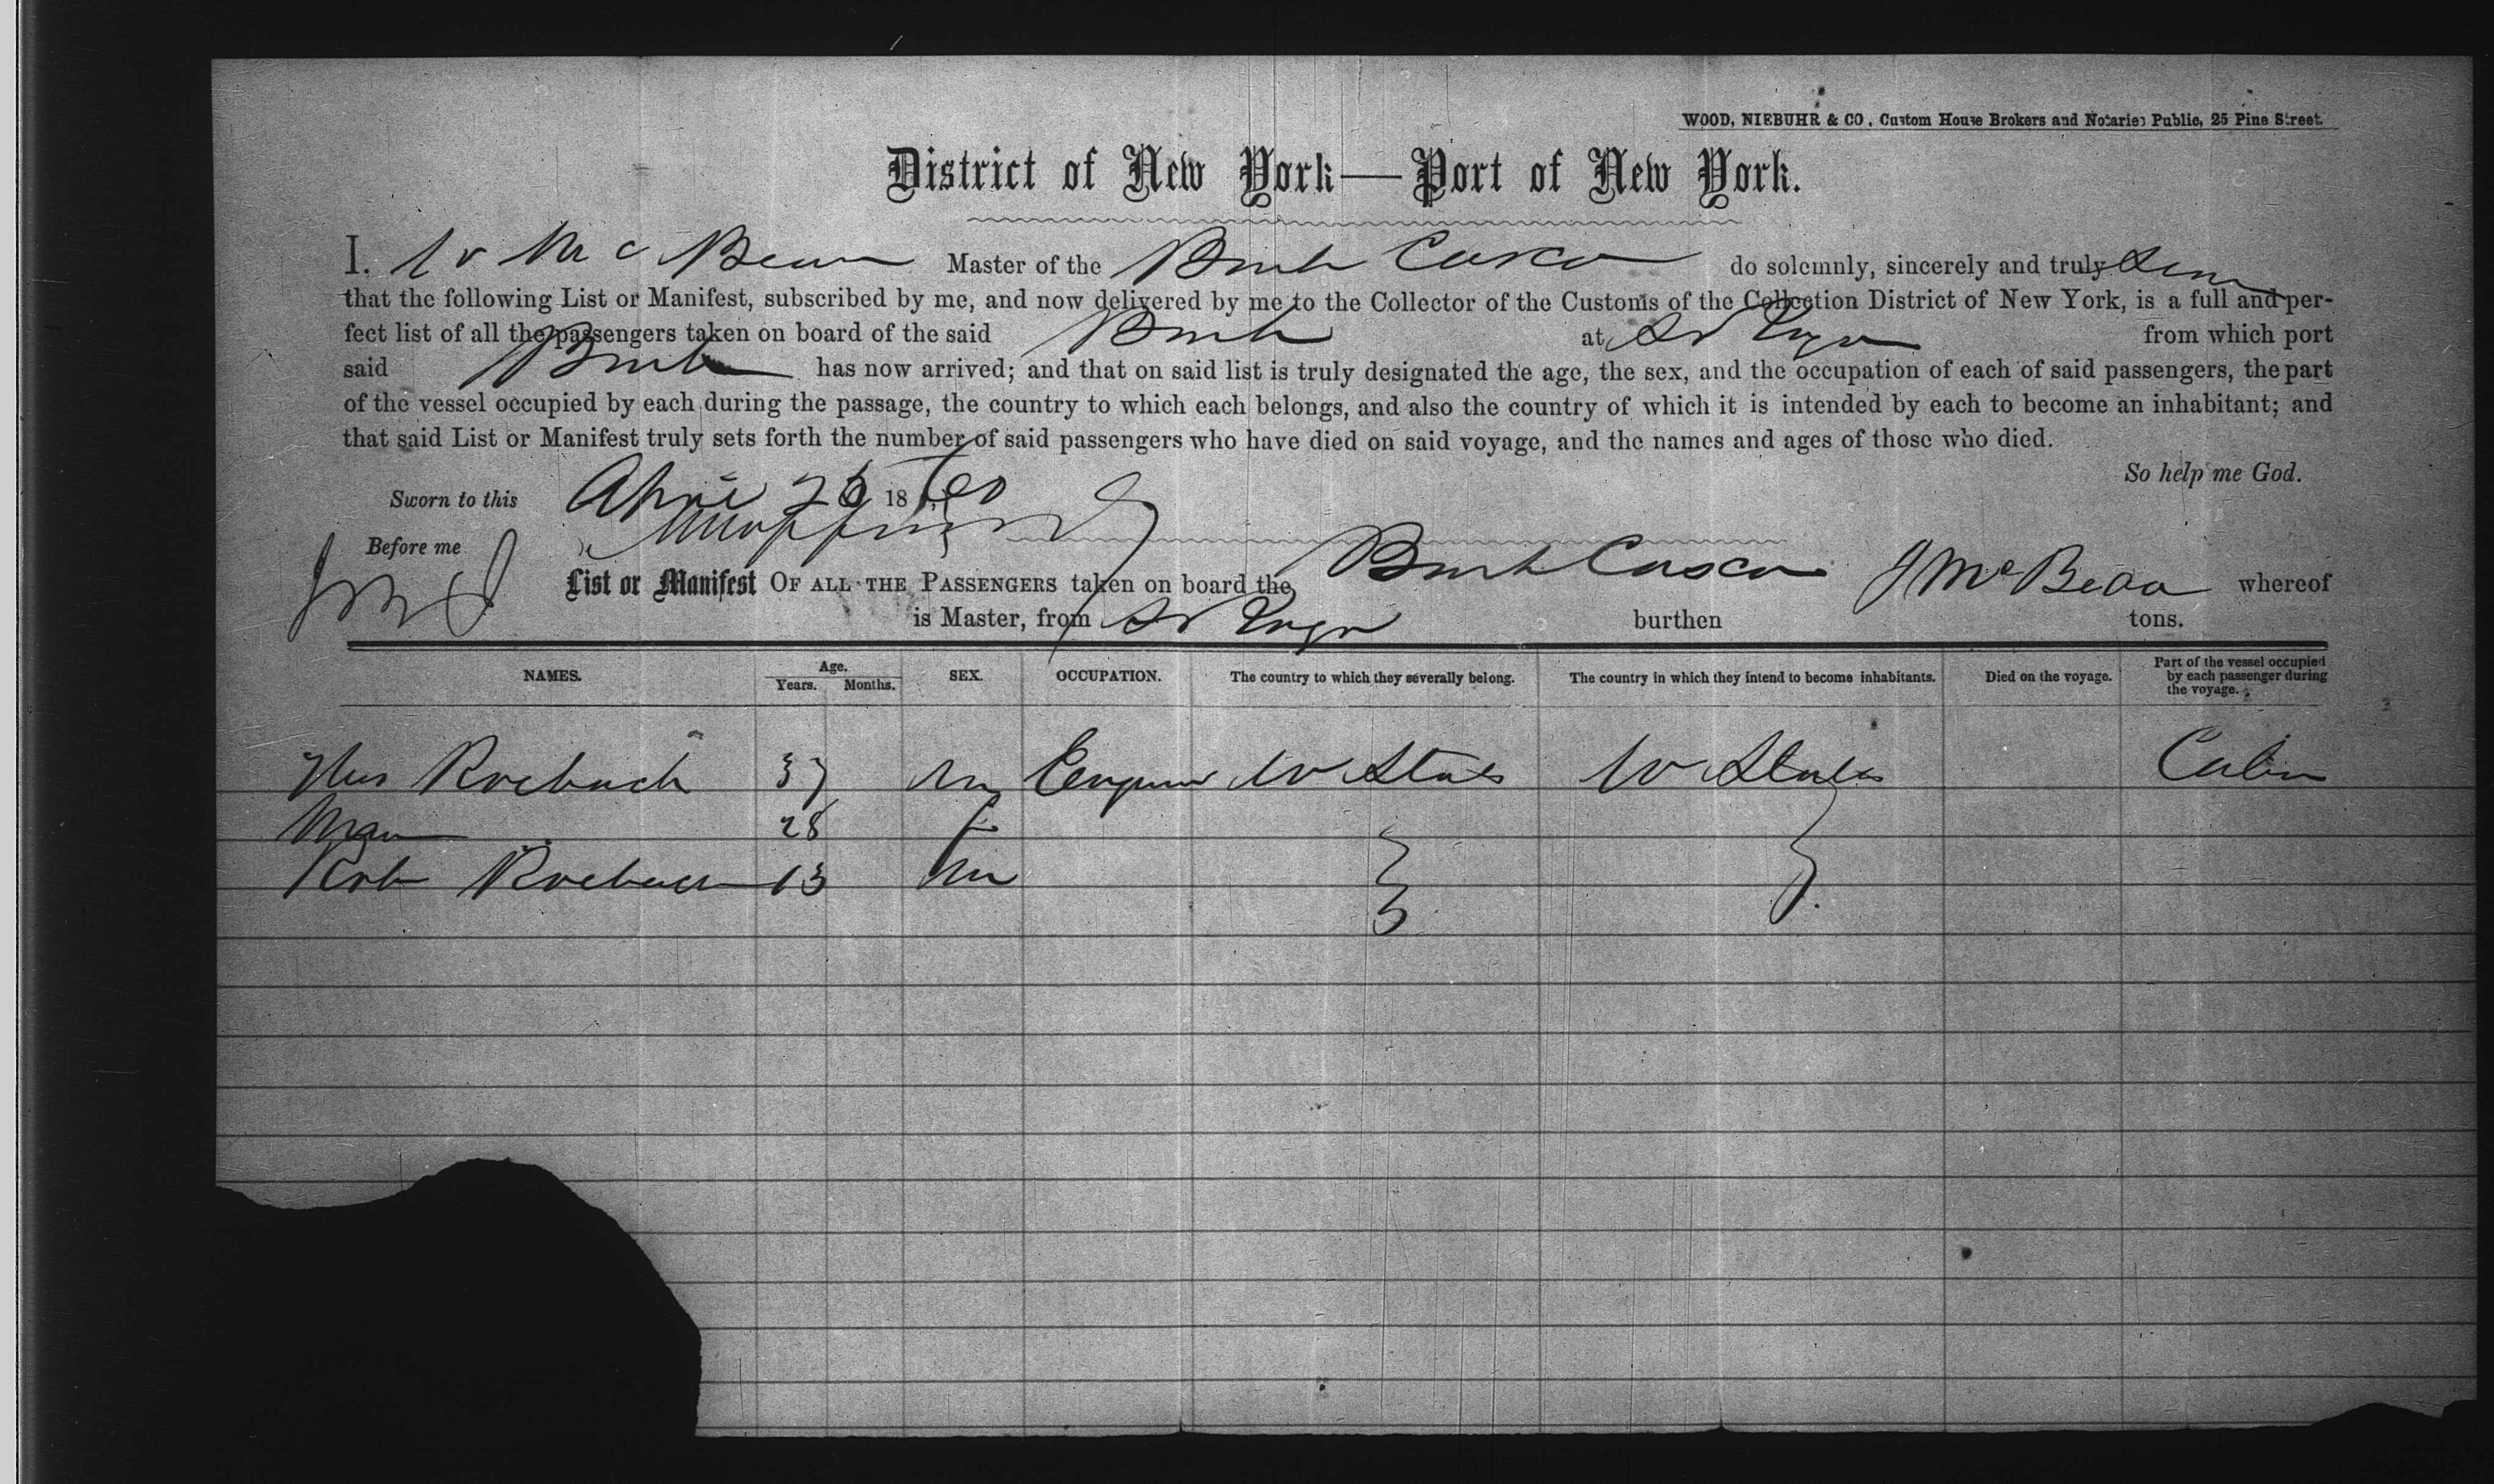 WOOD, NIEBUHR & CO., Custom House Brokers and Notaries Public, 25 Pine Street.
District of New York—Port of New York.
I. Mc Bean Master of the Casco do solemnly, sincerely and truly
that the following List or Manifest, subscribed by me, and now delivered by me to the Collector of the Customs of the Collection District of New York, is a full and per-
fect list of all the passengers taken on board of the said at from which port
said has now arrived; and that on said list is truly designated the age, the sex, and the occupation of each of said passengers, the part
of the vessel occupied by each during the passage, the country to which each belongs, and also the country of which it is intended by each to become an inhabitant; and
that said List or Manifest truly sets forth the number of said passengers who have died on said voyage, and the names and ages of those who died.
So help me God.
Sworn to this April 26 1880
Before me
List or Manifest OF ALL THE PASSENGERS taken on board the Casco J McBean whereof
is Master, from burthen tons.
NAMES. Age. Years. Months. SEX. OCCUPATION. The country to which they severally belong. The country in which they intend to become inhabitants. Died on the voyage. Part of the vessel occupied by each passenger during the voyage.
Roebuck 37 m U States U States Cabin
28 f
Rob Roebuck 13 m